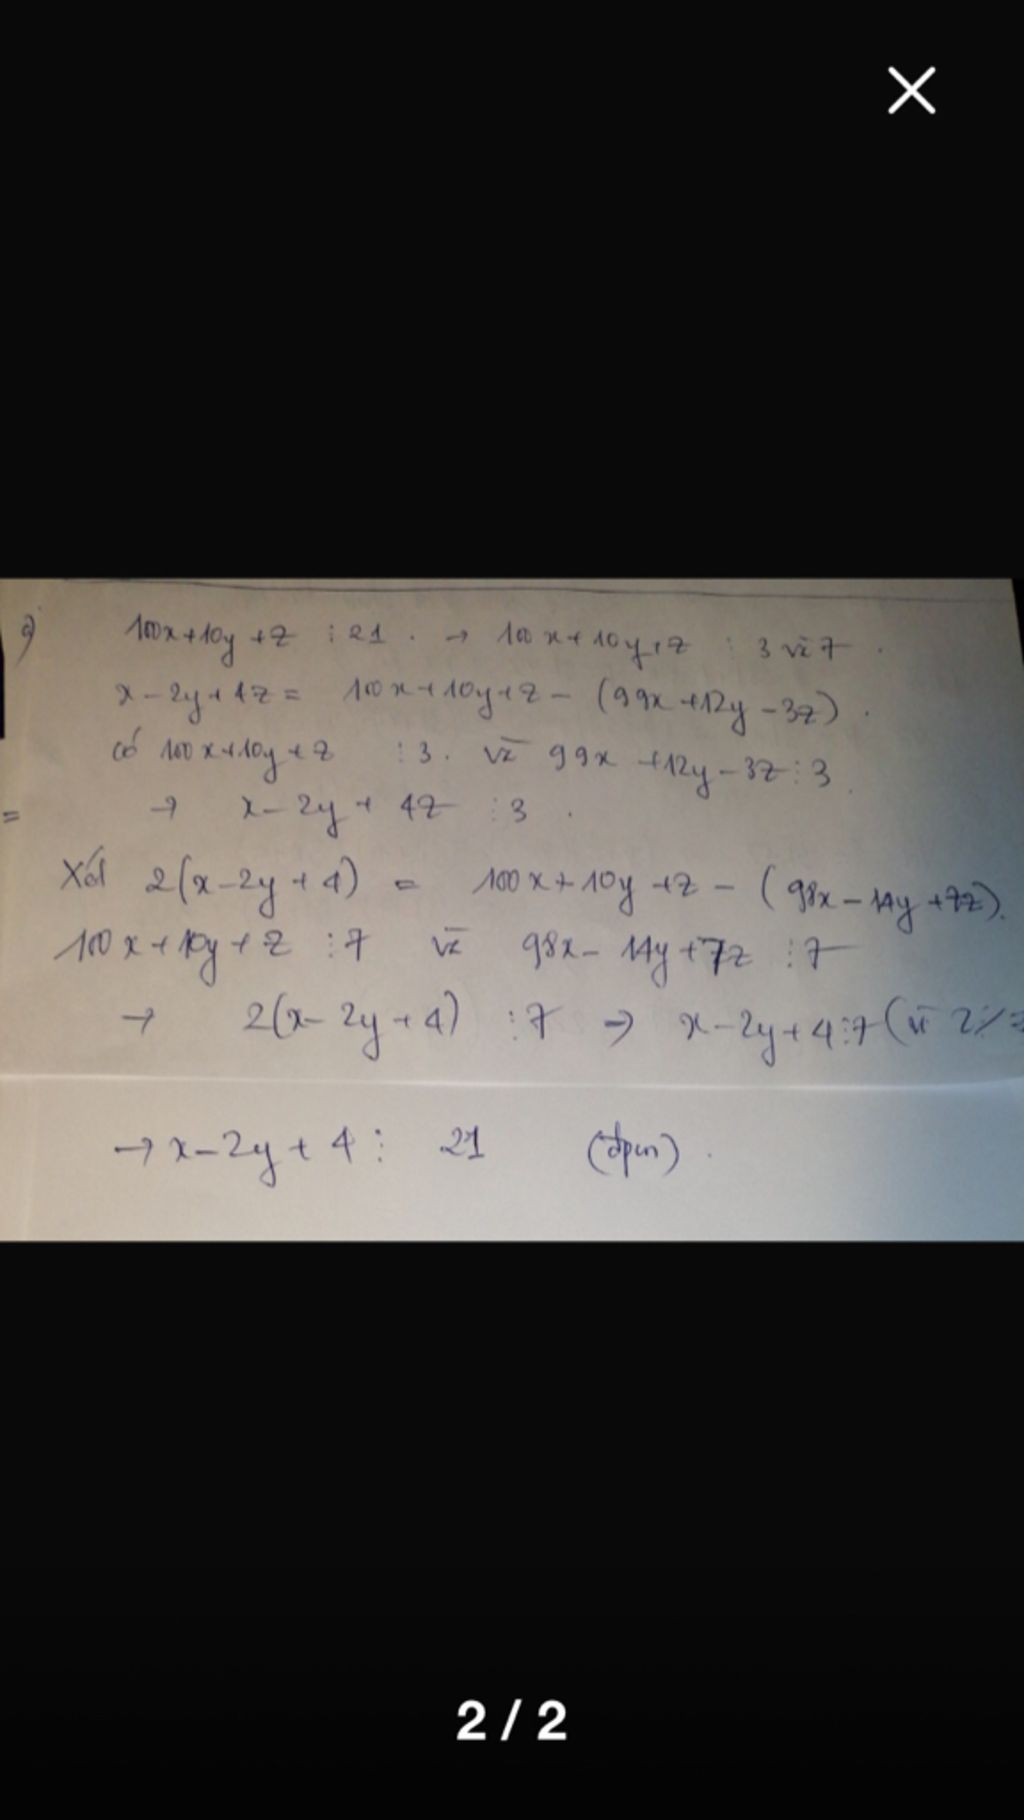 100x+10y+z ⋮ 21. → 100x+10y+z ⋮ 3 và 7.
x-2y+4z = 100x+10y+z - (99x+12y-3z).
có 100x+10y+z ⋮ 3. và 99x+12y-3z ⋮ 3.
=
→ x-2y+4z ⋮ 3.
Xét 2(x-2y+4) = 100x+10y+z - (98x-14y+7z).
100x+10y+z ⋮ 7 và 98x-14y+7z ⋮ 7
→ 2(x-2y+4) ⋮ 7 → x-2y+4 ⋮ 7 (vì 2
→ x-2y+4 ⋮ 21 (đpcm).
2 / 2